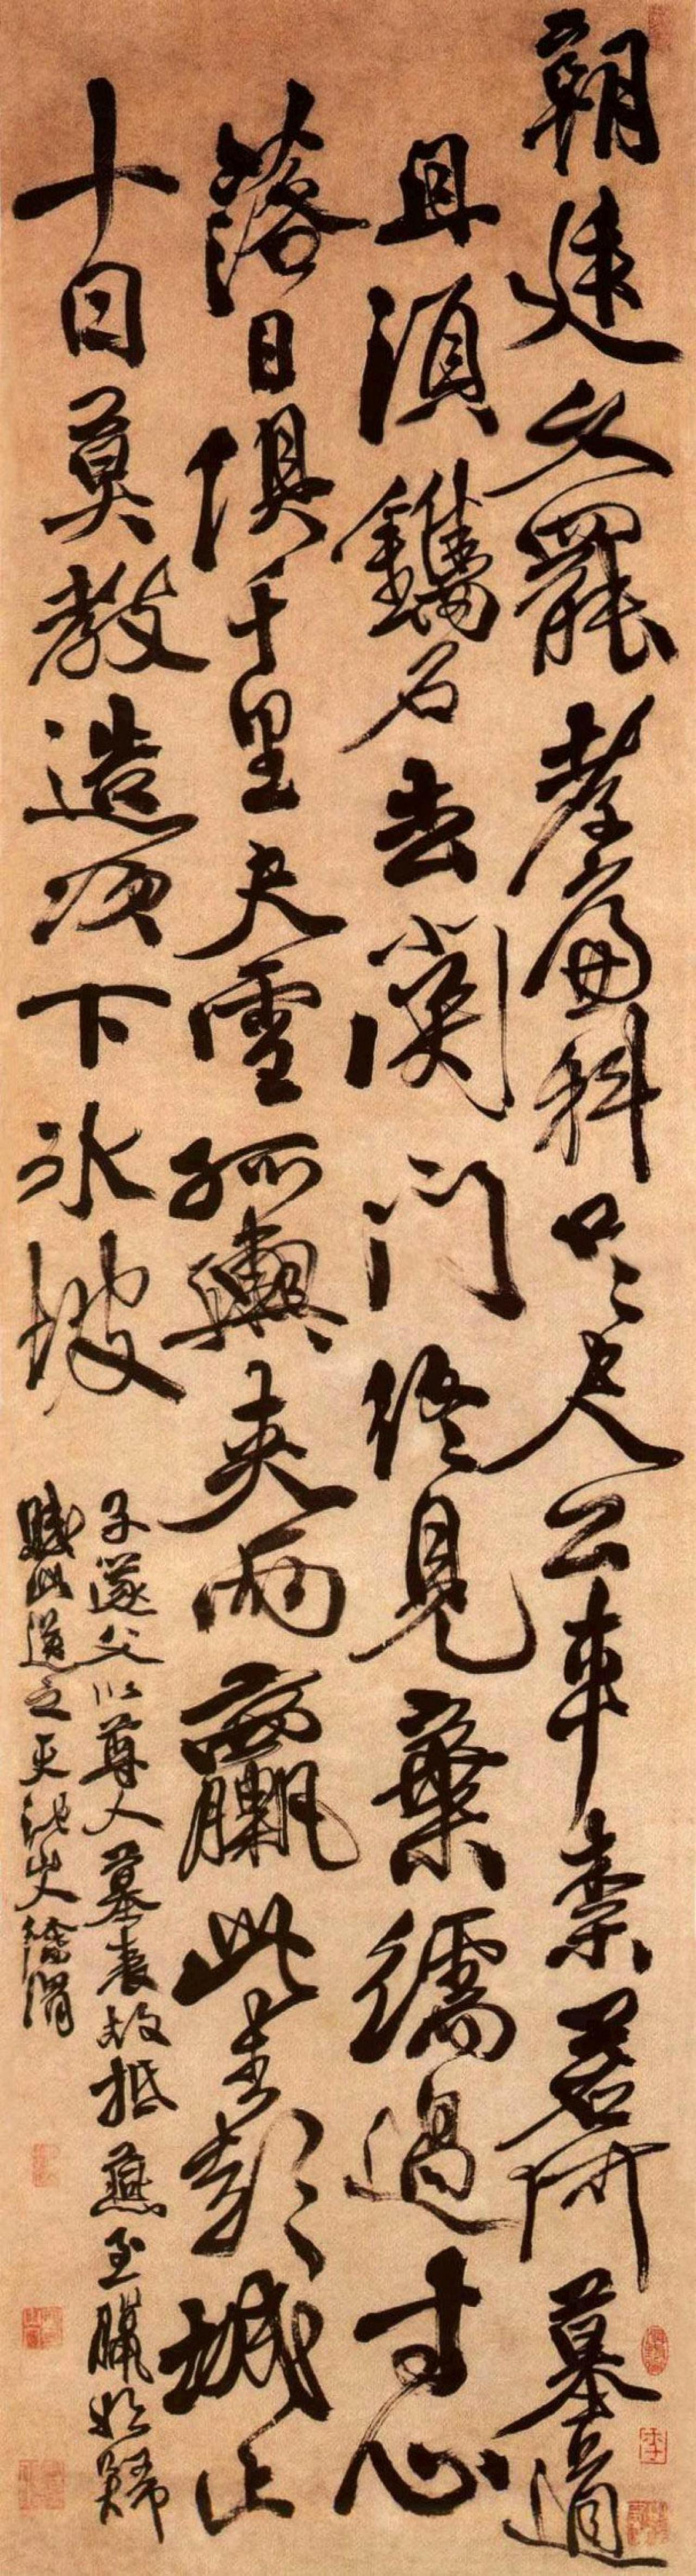 朝廷久罷孝廉科咫尺公車柰若何墓道
且須鐫石去關門終見棄繻過寸心
落日俱千里雪孤輿夾兩驘此去彭城止
十日莫教造次下冰坡
子遂父以尊人墓表故抵燕至臘將歸
賦此送之天池徐渭